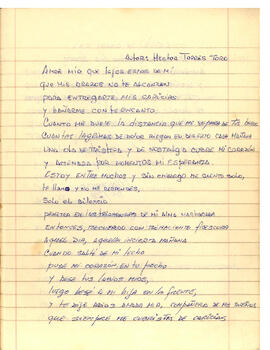 Autor: Hector Torres Toro
Amor mio que lejos estas de mi
que mis brazos no te alcanzan
para entregarte mis caricias
y bañarme con tu encanto
Cuanto me duele la distancia que me separa de tus besos
Cuantas lagrimas de dolor riegan en desierto cada mañana
Una ola de tristeza y de nostalgia cubre mi corazón
y por momentos mi esperanza.
Estoy entre muchos y sin embargo me siento solo,
te llamo y no me respondes,
solo el silencio
penetra en las de mi alma
Entonces, recuerdo con
aquel dia, aquella incierta mañana
cuando salte de mi lecho
puse mi corazón en tu pecho
y bese tus labios mios,
luego bese a mi hija en la frente,
y te dije adios amada mia, compañera de mis sueños
que siempre me cubriste de caricias.